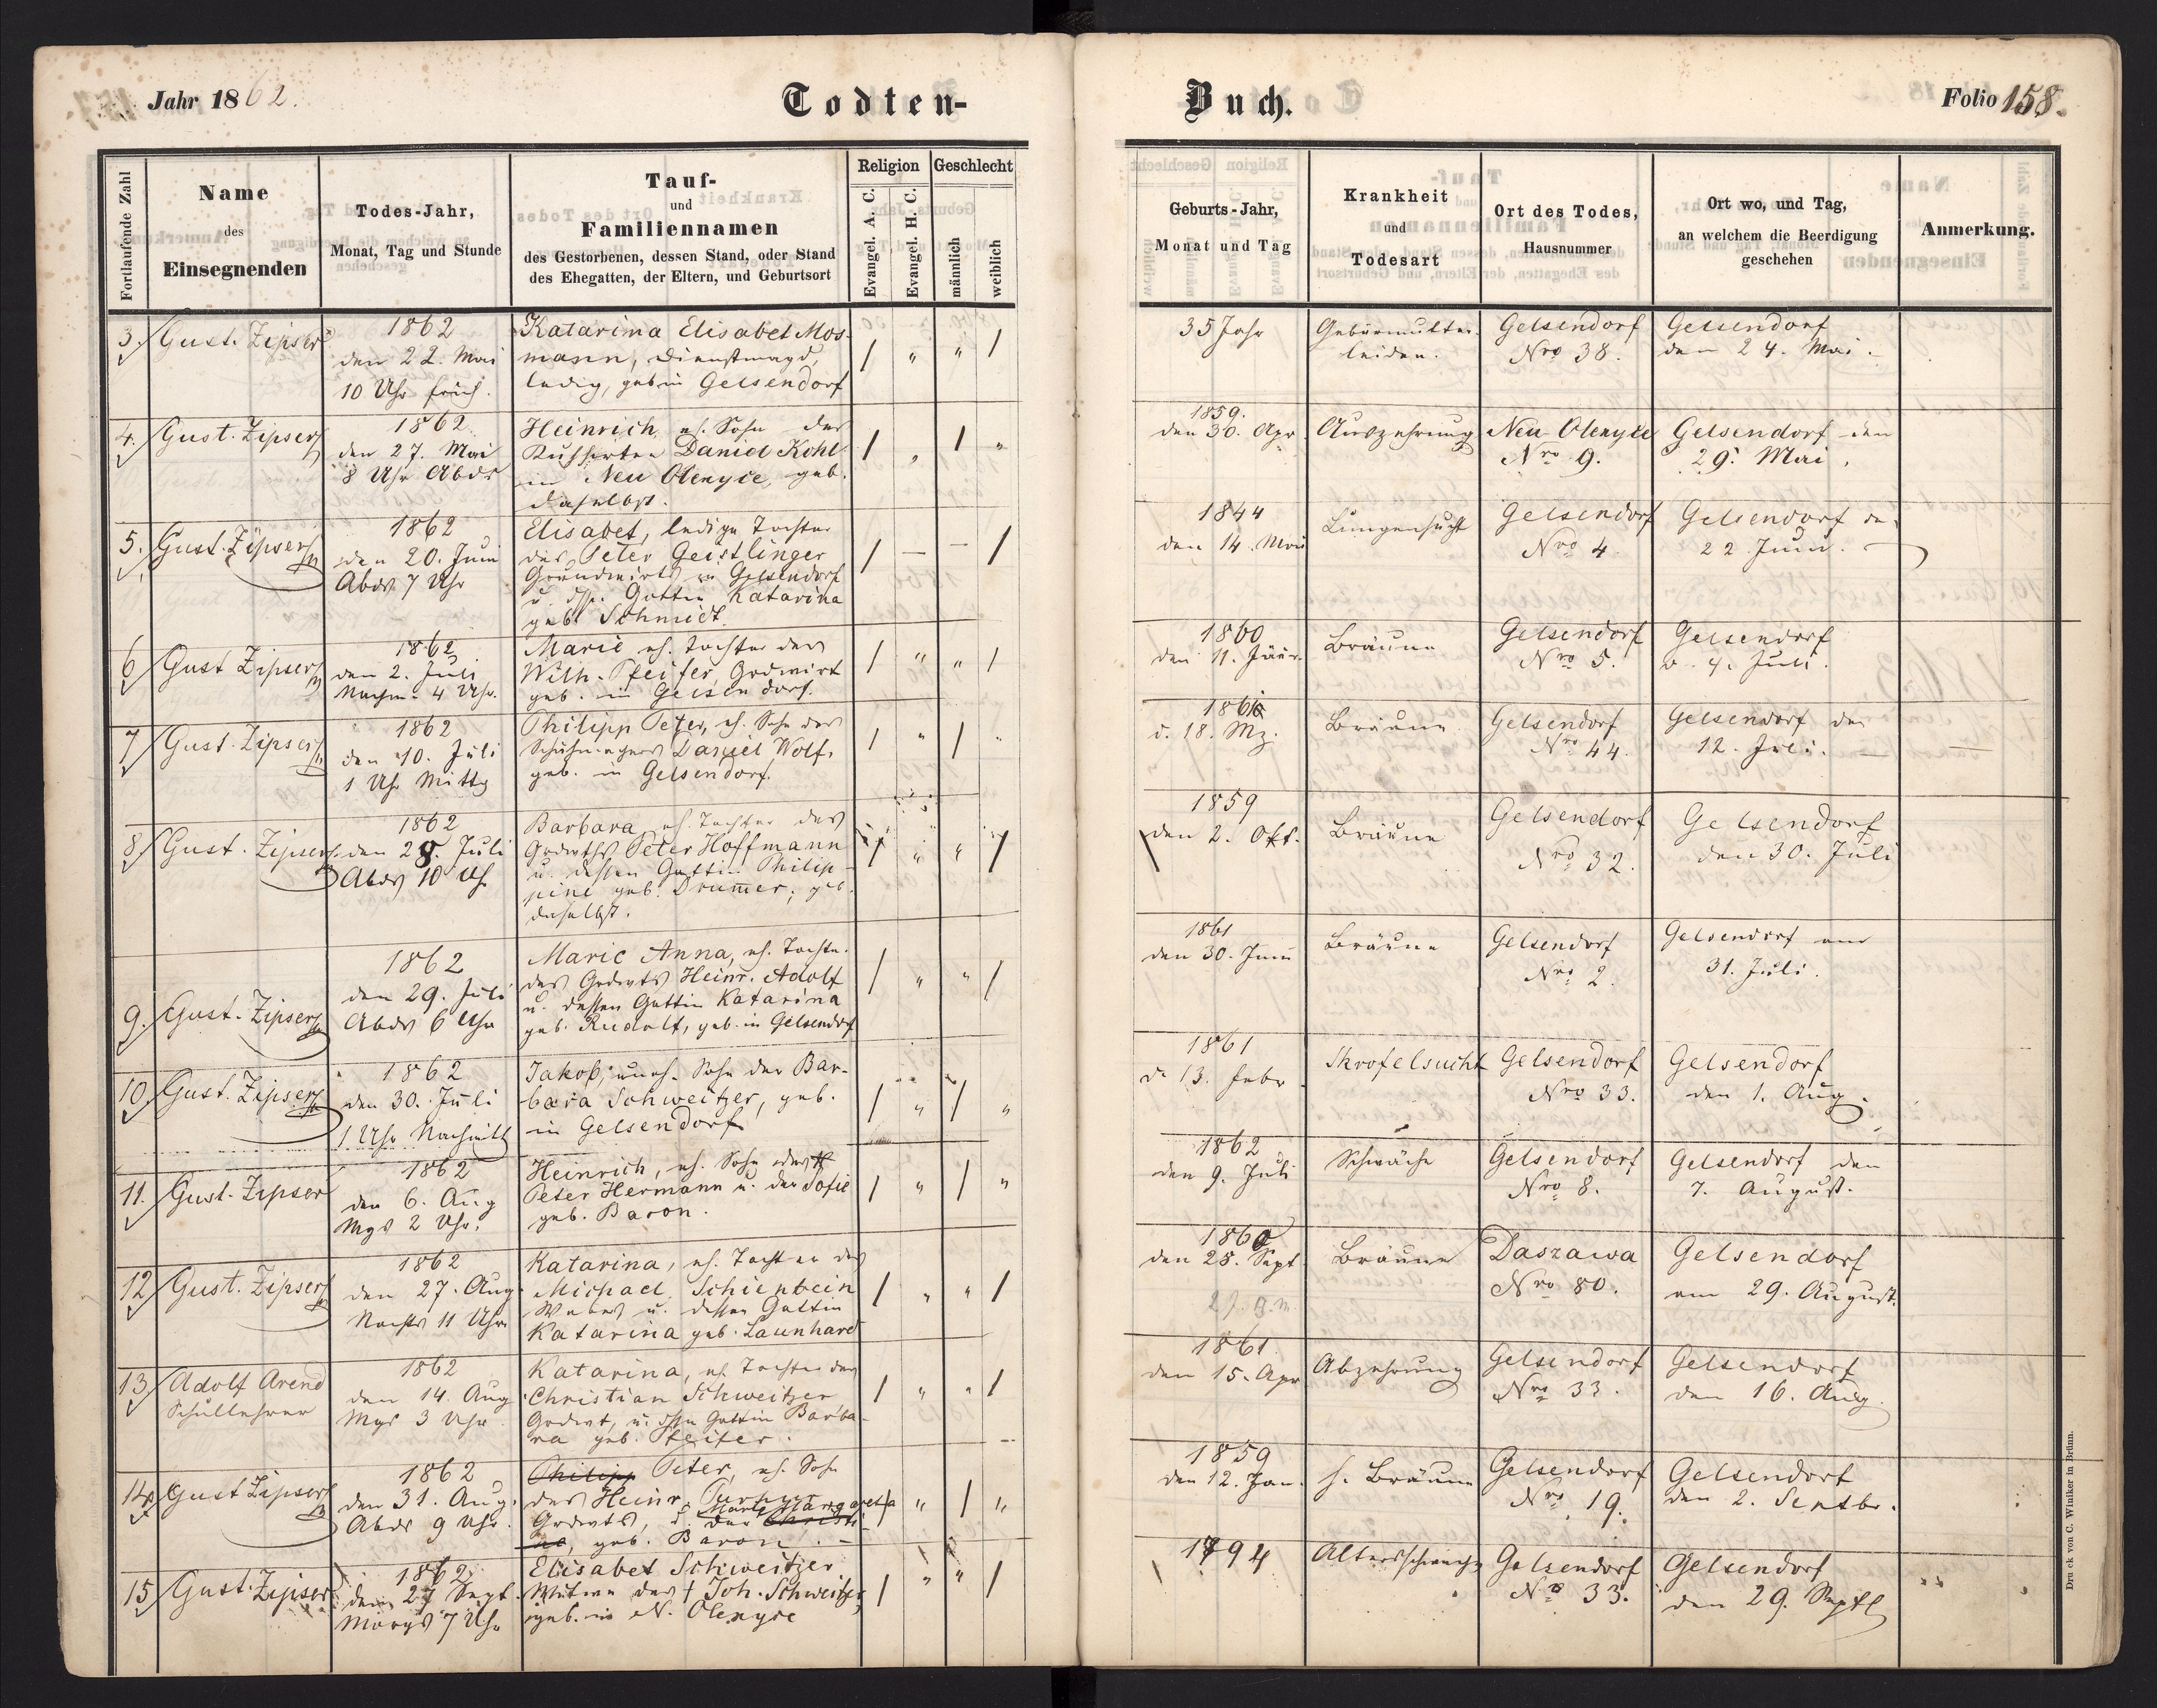 Jahr 1862.
Todten-
Buch.
Folio 158.
Fortlaufende Zahl
Name
des
Einsegnenden
Todes-Jahr,
Monat, Tag und Stunde
Tauf-
und
Familiennamen
des Gestorbenen, dessen Stand, oder Stand
des Ehegatten, der Eltern, und Geburtsort
Religion
Evangel. A. C.
Evangel. H. C.
Geschlecht
männlich
weiblich
Geburts-Jahr,
Monat und Tag
Krankheit
und
Todesart
Ort des Todes,
Hausnummer
Ort wo, und Tag,
an welchem die Beerdigung
geschehen
Anmerkung.
3. Gust. Zipser
1862
den 22. Mai
10 Uhr früh.
Katarina Elisabet Mos-
mann, Dienstmagd,
ledig, geb. in Gelsendorf
/ " " /
35 Jahr
Gebärmutter-
leiden.
Gelsendorf
Nro 38.
Gelsendorf
den 24. Mai.
4. Gust. Zipser
1862
den 27. Mai
8 Uhr Abds
Heinrich eh. Sohn des
Kuhhirten Daniel Kohl
in Neu Olenyce, geb.
daselbst.
/ " / "
1859.
den 30. Apr.
Auszehrung
Neu Olenyce
Nro 9.
Gelsendorf den
29. Mai.
5. Gust. Zipser
1862
den 20. Juni
Abds 7 Uhr
Elisabet, ledige Tochter
des Peter Geistlinger
Grundwirts in Gelsendorf
u. dssn. Gattin Katarina
geb. Schmidt.
/ — — /
1844
den 14. Mai
Lungensucht
Gelsendorf
Nro 4.
Gelsendorf den
22 Juni.
6 Gust Zipser
1862
den 2. Juli
Nachm. 4 Uhr.
Marie eh. Tochter des
Wilh. Pfeifer, Grdwirt
geb. in Gelsendorf.
/ " " /
1860
den 11. Jäner.
Bräune
Gelsendorf
Nro 5.
Gelsendorf
d. 4. Juli.
7 Gust. Zipser
1862
den 10. Juli
1 Uhr Mittg
Philipp Peter, eh. Sohn des
Daniel Wolf,
geb. in Gelsendorf.
/ " / "
d. 18. Mz.
Bräune
Gelsendorf
Nro 44.
Gelsendorf den
12. Juli.
8 Gust. Zipser
1862
den 28. Juli
Abds 10 Uhr
Barbara eh. Tochter des
Grdwirths Peter Hoffmann
u. dessen Gattin Philip-
pine geb. Drum̄er, geb.
daselbst.
/ " " /
1859
den 2. Okt.
Bräune
Gelsendorf
Nro 32.
Gelsendorf
den 30. Juli
9. Gust. Zipser
1862
den 29. Juli
Abds 6 Uhr
Marie Anna, eh. Tochter
des Grdwts Heinr. Adolf
u. dessen Gattin Katarina
geb. Rudolf, geb. in Gelsendorf
/ " " /
1861
den 30. Juni
Bräune
Gelsendorf
Nro 2.
Gelsendorf am
31. Juli.
10. Gust. Zipser
1862
den 30. Juli
1 Uhr Nachmitt
Jakob, uneh. Sohn der Bar-
bara Schweitzer, geb.
in Gelsendorf
/ " / "
1861
d. 13. Febr.
Skrofelsucht
Gelsendorf
Nro 33.
Gelsendorf
den 1. Aug.
11. Gust. Zipser
1862
den 6. Aug
Mgs 2 Uhr.
Heinrich, eh. Sohn des
Peter Hermann u. der Sofie
geb. Baron.
/ " / "
1862
den 9. Juli
Schwäche
Gelsendorf
Nro 8.
Gelsendorf den
7. August.
12 Gust. Zipser
1862
den 27. Aug.
Nachts 11 Uhr
Katarina, eh. Tochter des
Michael Schienbein
Webers u. dessen Gattin
Katarina geb. Launhard
/ " " /
1860
den 28. Sept.
Bräune
Daszawa
Nro 80.
Gelsendorf
am 29. August.
13 Adolf Arend
Schullehrer
1862
den 14. Aug
Mgs 3 Uhr
Katarina, eh. Tochter des
Christian Schweitzer
Grdwt, u. dssn Gattin Barba-
ra geb. Pfeifer.
/ " " /
1861.
den 15. Apr
Abzehrung
Gelsendorf
Nro 33.
Gelsendorf
den 16. Aug.
14. Gust Zipser
1862
den 31. Aug.
Abds 9 Uhr.
Philipp Peter, eh. Sohn
des Heinr.
Marie Margareta
Grdwts, u. der Christi-
ne, geb. Baron.
/ " / "
1859
den 12. Jan.
h. Bräune
Gelsendorf
Nro 19.
Gelsendorf
den 2. Septbr.
15 Gust. Zipser
1862
den 27 Sept.
Morgs 7 Uhr
Elisabet Schweitzer
Witwe des † Joh. Schweitzer,
geb. in N. Olenyce
/ " " /
1794
Altersschwäche
Gelsendorf
No 33.
Gelsendorf
den 29. Septb
Druck von C. Winiker in Brünn.